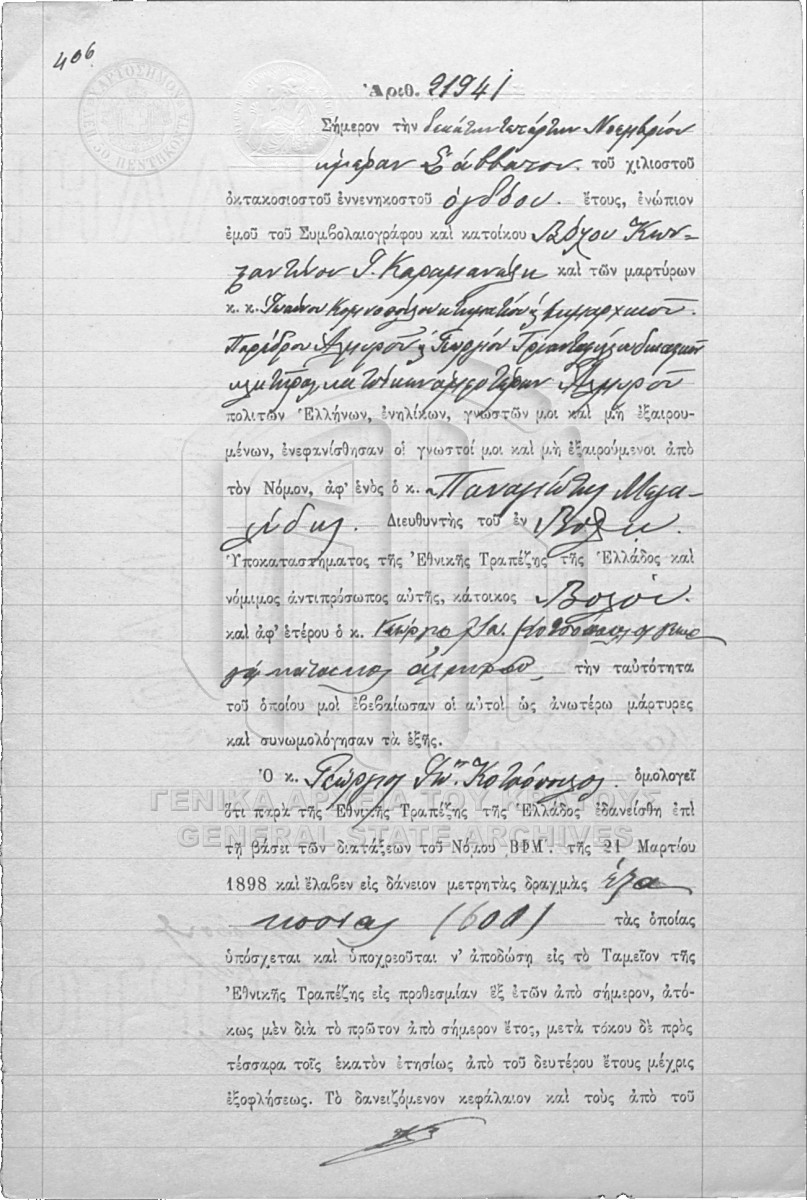 406
ΧΑΡΤΟΣΗΜΟΝ
50 ΠΕΝΤΗΚΟΝΤΑ
Ἀριθ. 21941
Σήμερον τὴν δεκάτην τετάρτην Νοεμβρίου
ἡμέραν Σάββατον. τοῦ χιλιοστοῦ
ὀκτακοσιοστοῦ ἐννενηκοστοῦ ὀγδόου ἔτους, ἐνώπιον
ἐμοῦ τοῦ Συμβολαιογράφου καὶ κατοίκου Βόλου Κων-
σταντίνου Καραμανώλη καὶ τῶν μαρτύρων
κ. κ. Ἰωάννου κτηματίου
Παρέδρου Ἀλμυροῦ Γεωργίου Τριανταφύλλου δικαστικοῦ
κλητῆρος κατοίκων ἀμφοτέρων Ἀλμυροῦ
πολιτῶν Ἑλλήνων, ἐνηλίκων, γνωστῶν μοι καὶ μὴ ἐξαιρου-
μένων, ἐνεφανίσθησαν οἱ γνωστοί μοι καὶ μὴ ἐξαιρούμενοι ἀπὸ
τὸν Νόμον, ἀφ' ἑνὸς ὁ κ. Παναγιώτης
Διευθυντὴς τοῦ ἐν Βόλῳ
Ὑποκαταστήματος τῆς Ἐθνικῆς Τραπέζης τῆς Ἑλλάδος καὶ
νόμιμος ἀντιπρόσωπος αὐτῆς, κάτοικος Βόλου.
καὶ ἀφ' ἑτέρου ὁ κ. Γεώργιος Ἰω. Κοτσόπουλος
κάτοικος Ἀλμυροῦ, τὴν ταὐτότητα
τοῦ ὁποίου μοὶ ἐβεβαίωσαν οἱ αὐτοὶ ὡς ἀνωτέρω μάρτυρες
καὶ συνωμολόγησαν τὰ ἑξῆς.
Ὁ κ. Γεώργιος Ἰω. Κοτσόπουλος ὁμολογεῖ
ΓΕΝΙΚΑ ΑΡΧΕΙΑ ΤΟΥ ΚΡΑΤΟΥΣ
ὅτι παρὰ τῆς Ἐθνικῆς Τραπέζης τῆς Ἑλλάδος ἐδανείσθη ἐπὶ
GENERAL STATE ARCHIVES
τῇ βάσει τῶν διατάξεων τοῦ Νόμου ΒΦΜ΄. τῆς 21 Μαρτίου
1898 καὶ ἔλαβεν εἰς δάνειον μετρητὰς δραχμὰς ἑξα
κοσίας (600) τὰς ὁποίας
ὑπόσχεται καὶ ὑποχρεοῦται ν' ἀποδώσῃ εἰς τὸ Ταμεῖον τῆς
Ἐθνικῆς Τραπέζης εἰς προθεσμίαν ἓξ ἐτῶν ἀπὸ σήμερον, ἀτό-
κως μὲν διὰ τὸ πρῶτον ἀπὸ σήμερον ἔτος, μετὰ τόκου δὲ πρὸς
τέσσαρα τοῖς ἑκατὸν ἐτησίως ἀπὸ τοῦ δευτέρου ἔτους μέχρις
ἐξοφλήσεως. Τὸ δανειζόμενον κεφάλαιον καὶ τοὺς ἀπὸ τοῦ